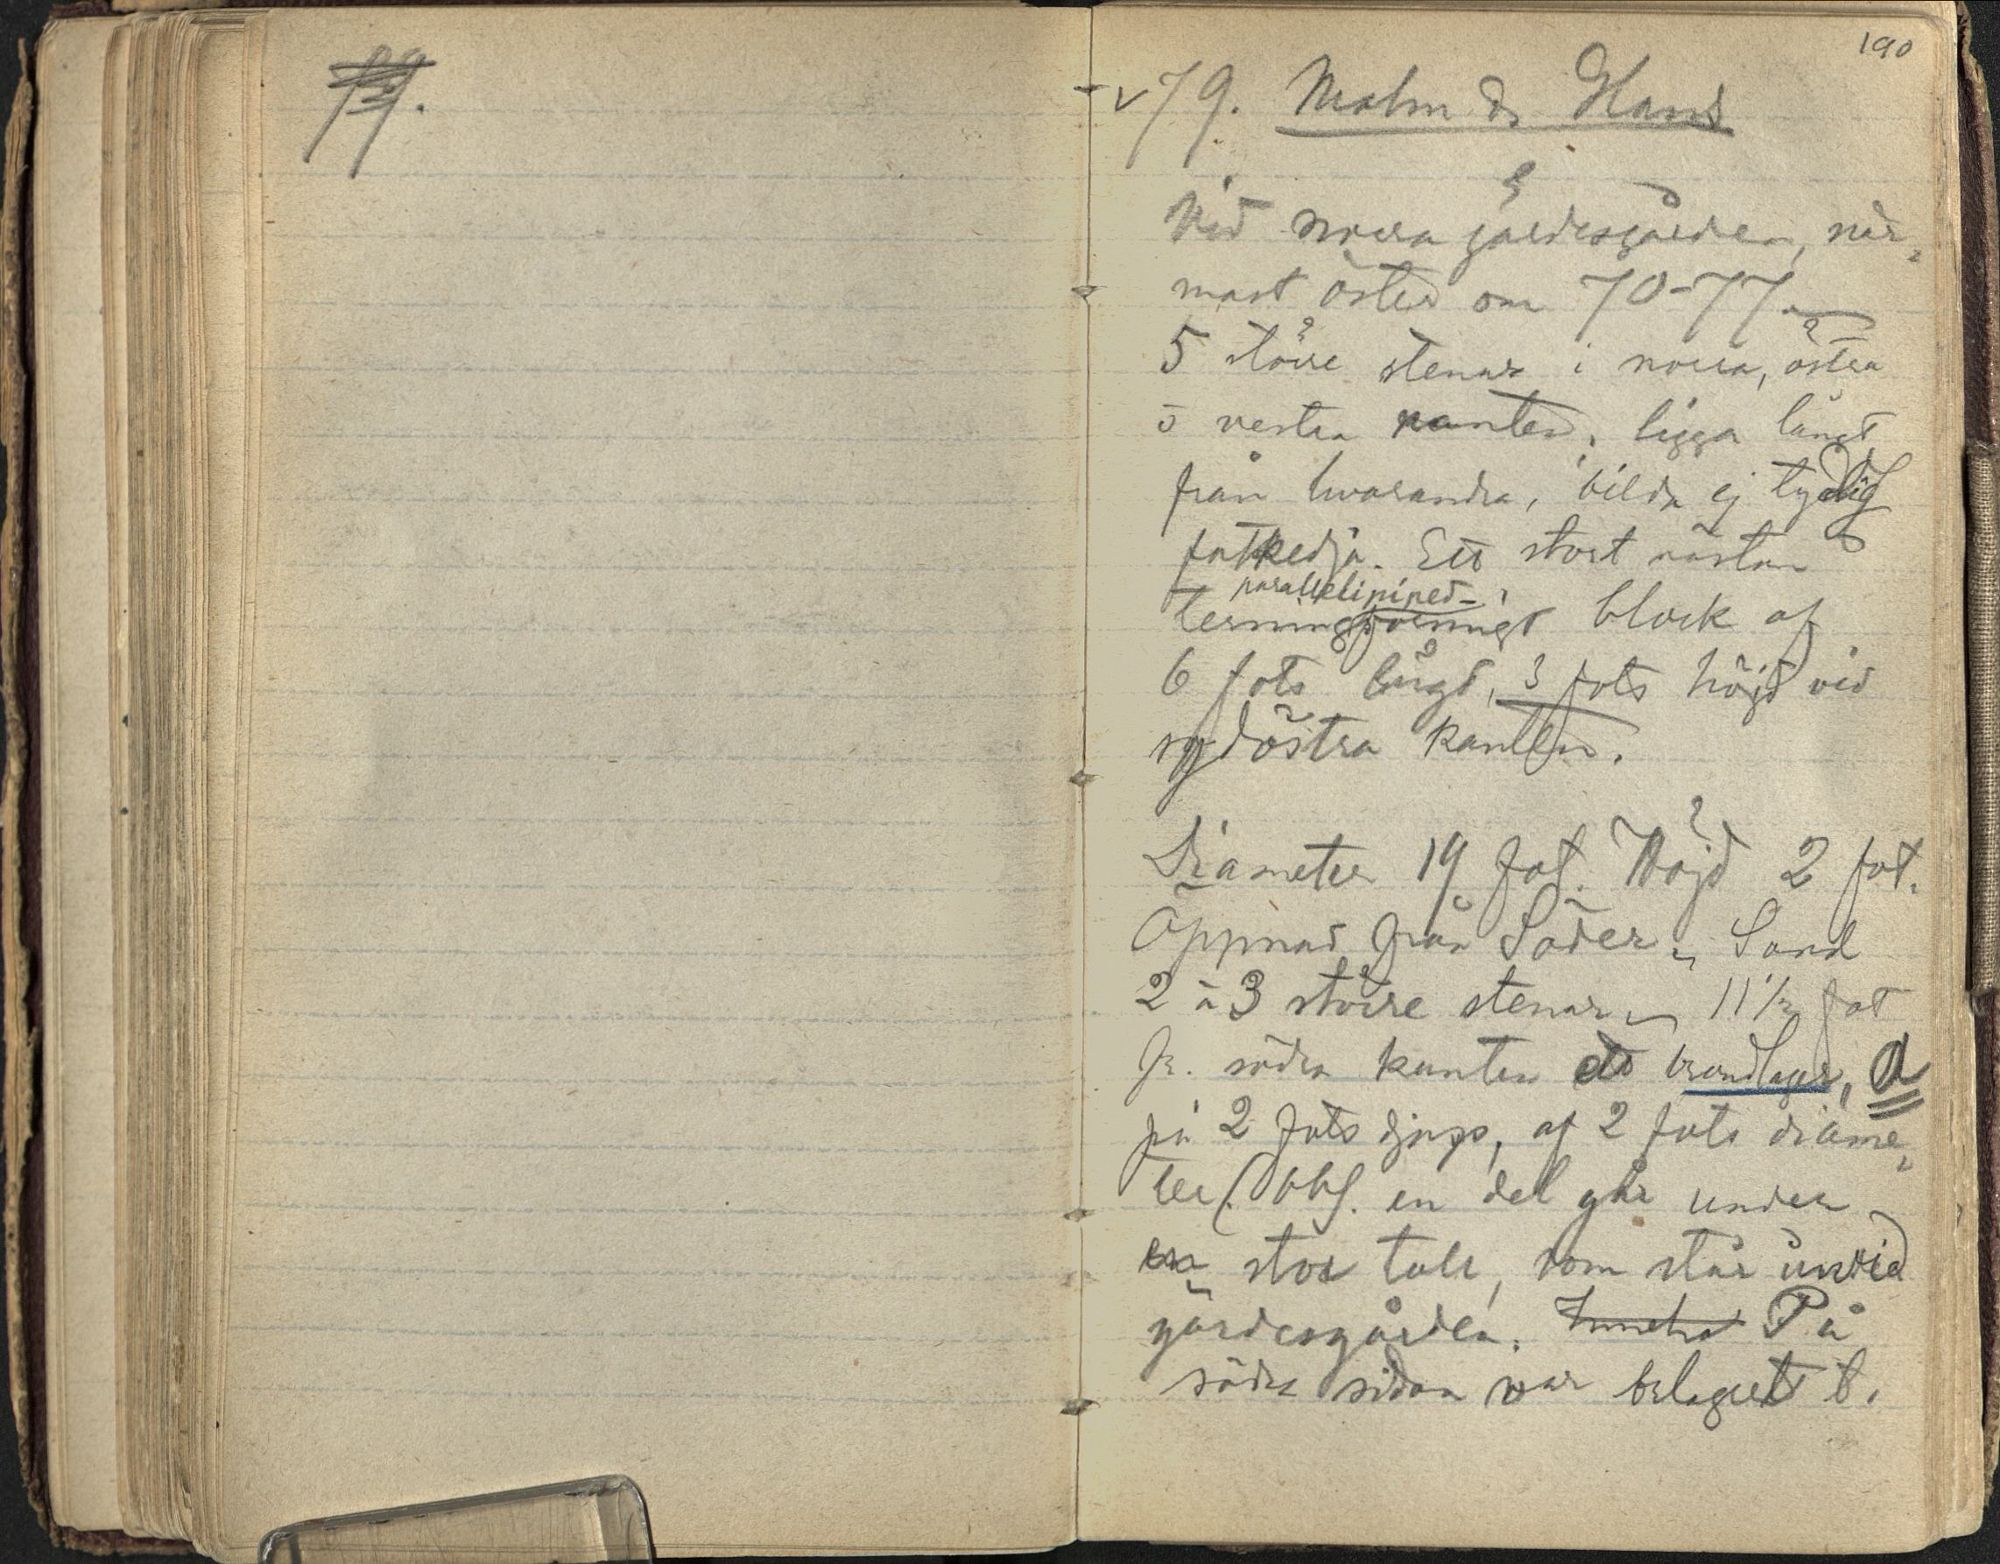 79.
190
79. Malm & Hans
Vid norra gärdesgården, när-
mast öster om 70-77.
5 större stenar i norra, östra
o vestra kanten, ligga långt
från hvarandra, bilda ej tydlig
fotkedja. Ett stort nästan
parallelipiped-
terningformigt block af
6 fots längd, 3 fots höjd vid
sydöstra kanten.
Diameter 19 fot. Höjd 2 fot.
Öppnad från Söder. Sand
2 à 3 större stenar 11½ fot
fr. södra kanten ett brandlager, a
på 2 fots djup, af 2 fots diame-
ter. Obs. en del går under
en stor tall, som står invid
gärdesgården. På
södra sidan var brlagret b.